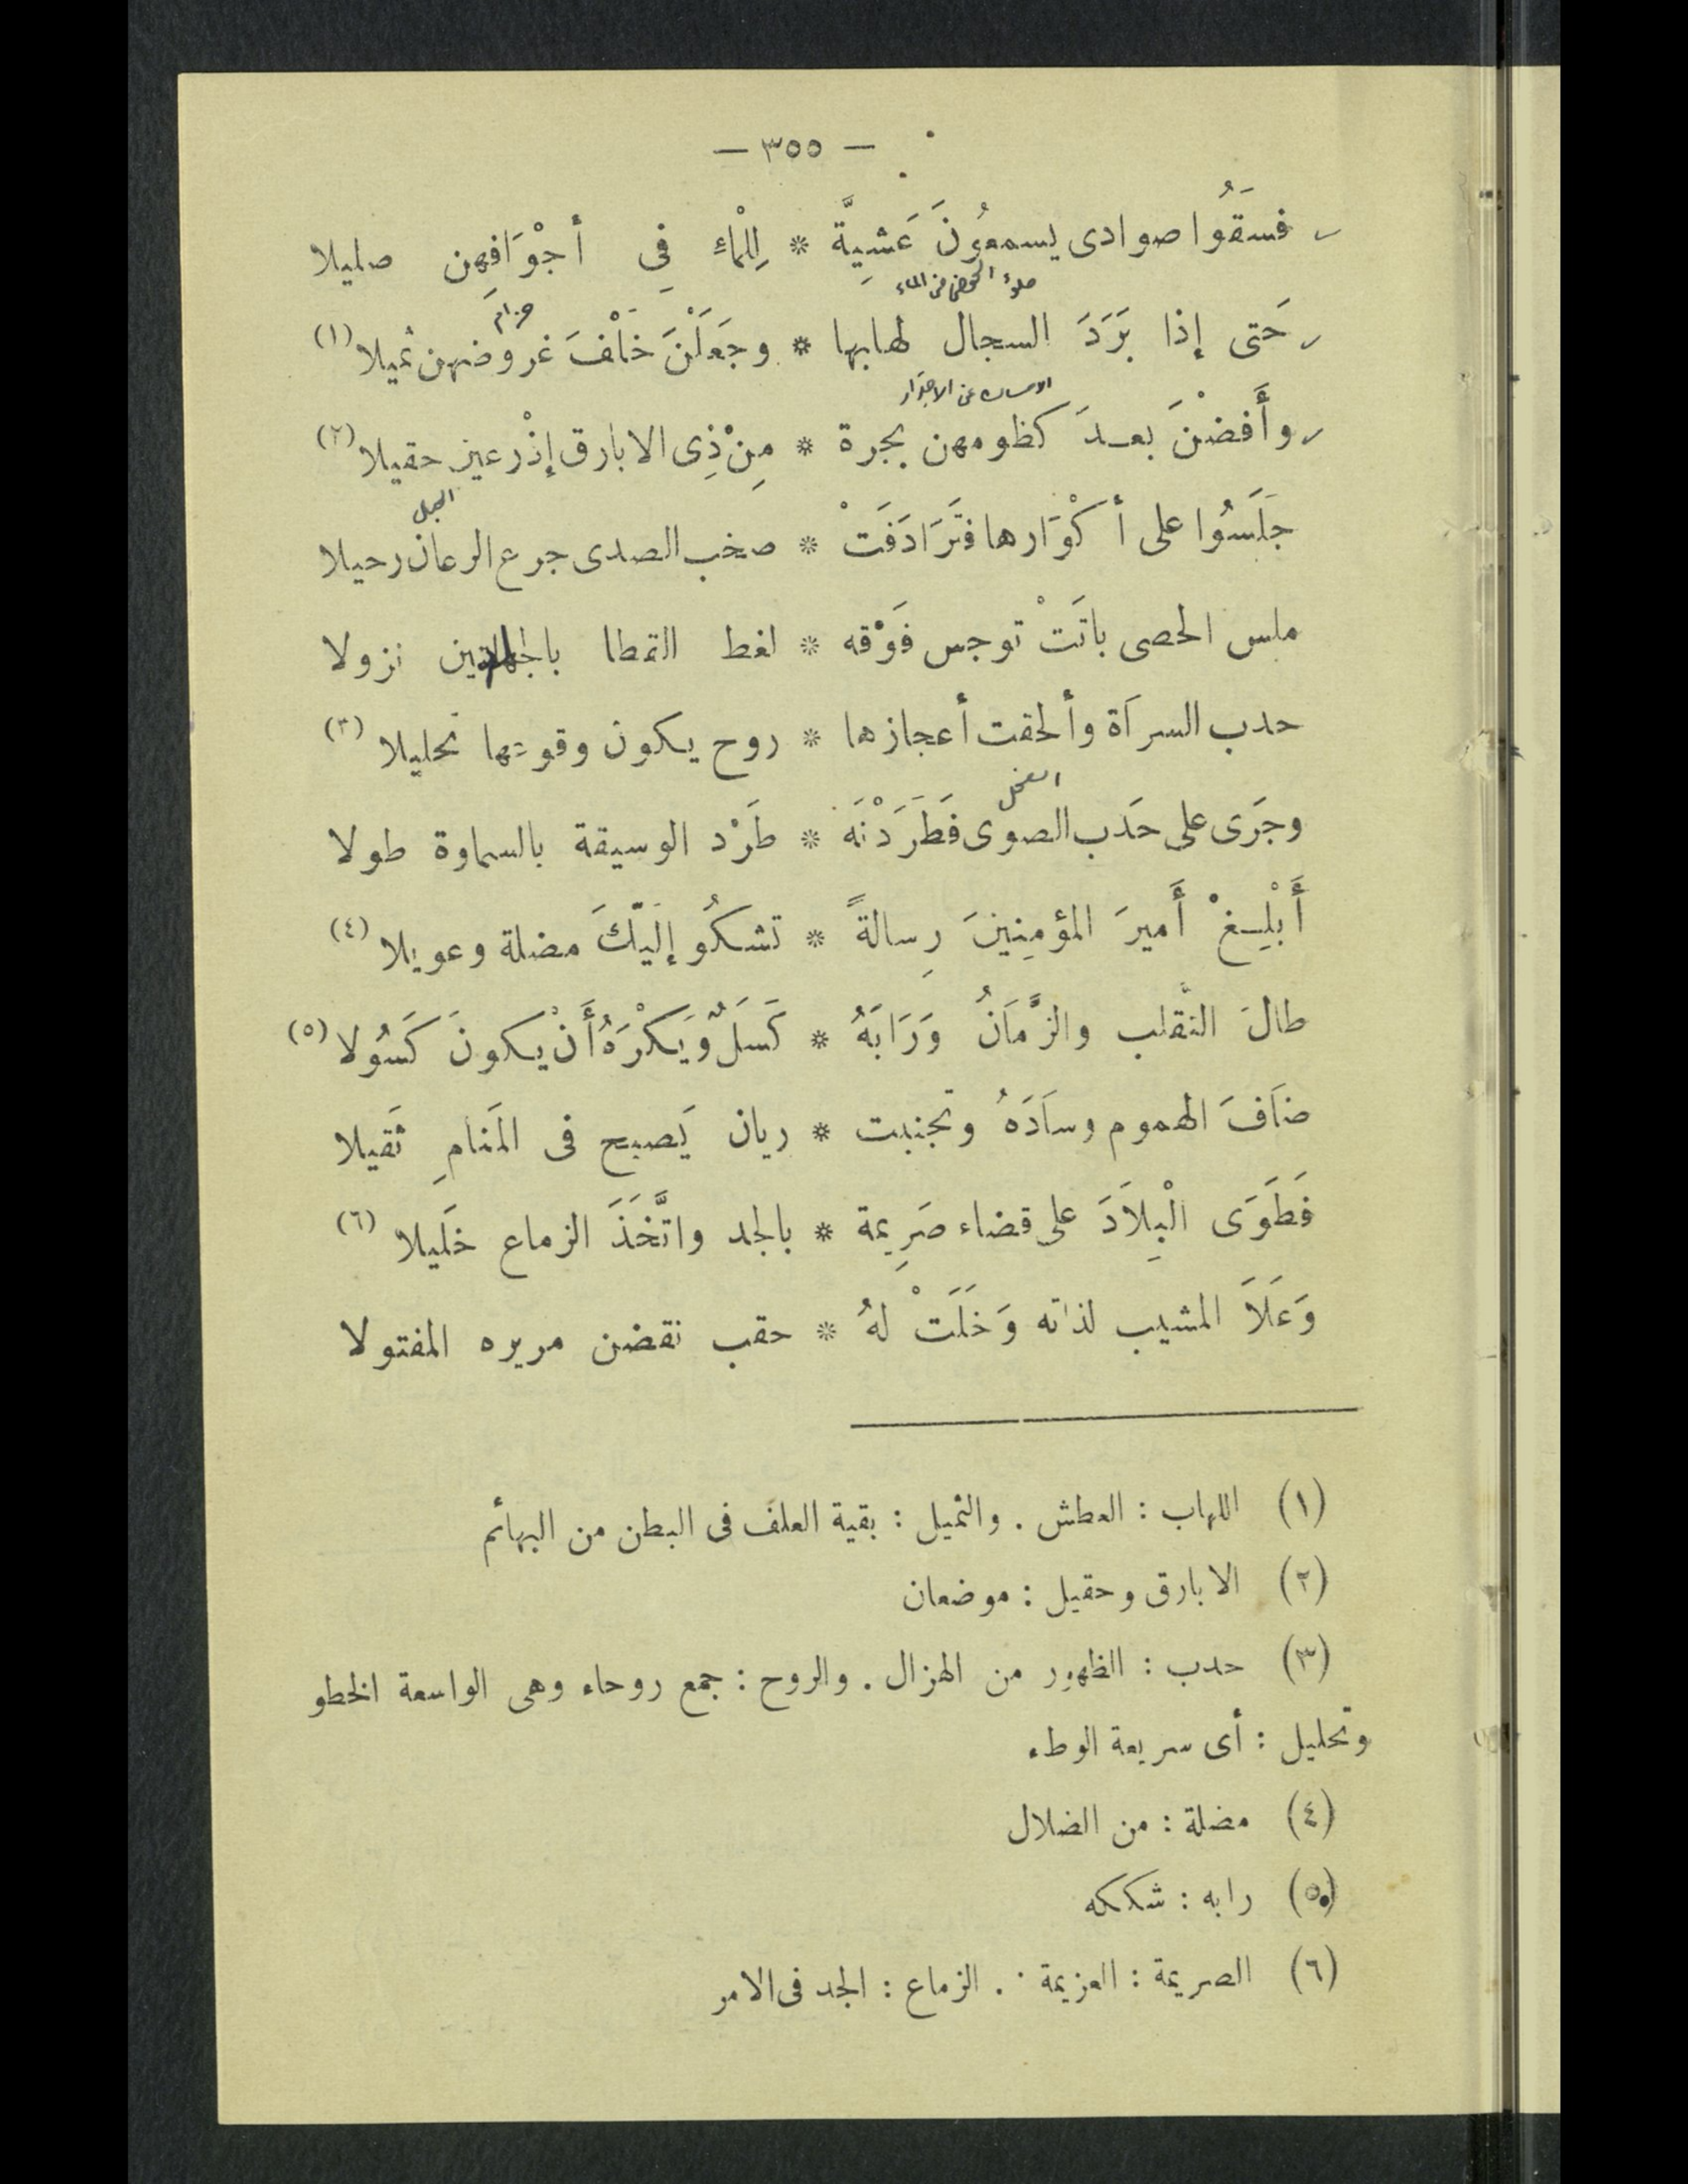 — ٣٥٥ —
فسَقَوُا صوادى يسمعوُنَ عَشيَّة * لِلْماءِ فِي أجْوَافِهن صليلا
ملؤ الحوض من الماء
حزام
حَتى إذا بَرَدَ السجال لهابها * وجَعَلْنَ خَلْفَ غروضهن ثميلا (١)
وأَفضْنَ بعـدَ كظومهن بجرة * مِنْ ذِى الابارق إذْ رعين حقيلا (٢)
الجبل
جلَسُوا على أكْوَارها فتَرَادَفَتْ * صخب الصدى جرع الرعان رحيلا
ملس الحصى باتَتْ توجس فَوْقه * لغط القطا نزولا
حدب السرَاة وألحقت أعجازها * روح يكون وقوعها تحليلا (٣)
وجَرَى على حَدَب الصوى فَطَرَدْنَه * طَرْد الوسيقة بالسماوة طولا
أَبْلِـغْ أَميرَ المؤمِنِينَ رِسالةً * تشكُو إلَيْكَ مضلة وعويلا (٤)
طالَ التقلب والزَّمَانُ وَرَابَهُ * كَسَلٌ وَيَكْرَهُ أَنْ يكونَ كَسُولا (٥)
ضاَفَ الهموم وسَادَهُ وتجنبت * ريان يَصبح فى المَنامِ ثَقيلا
فَطَوَى الْبِلاَدَ على قضاء صَرِيمة * بالجد واتَّخَذَ الزماع خَليلا (٦)
وَعَلاَ المشيب لذاته وَخَلَتْ لهُ * حقب نقضن مريره المفتولا
(١) اللهاب : العطش . والثميل : بقية العلف فى البطن من البهائم
(٢) الابارق وحقيل : موضعان
(٣) حدب : الظهور من الهزال . والروح : جمع روحاء وهى الواسعة الخطو
وتحليل : أى سريعة الوطء
(٤) مضلة : من الضلال
(٥) رابه : شككه
(٦) الصريمة : العزيمة . الزماع : الجد فى الامر